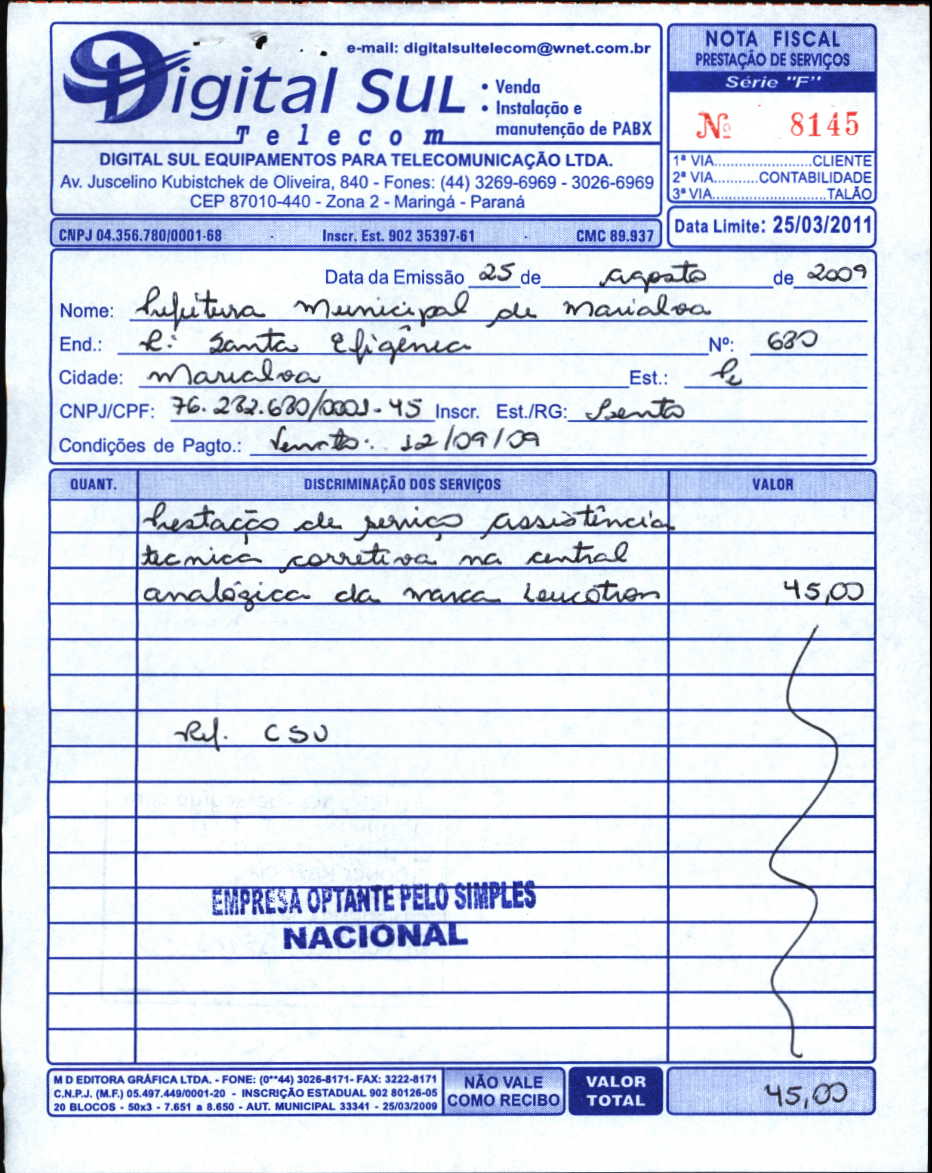 e-mail: digitalsultelecom@wnet.com.br
Digital Sul
Telecom
• Venda
• Instalação e
manutenção de PABX
DIGITAL SUL EQUIPAMENTOS PARA TELECOMUNICAÇÃO LTDA.
Av. Juscelino Kubistchek de Oliveira, 840 - Fones: (44) 3269-6969 - 3026-6969
CEP 87010-440 - Zona 2 - Maringá - Paraná
NOTA FISCAL
PRESTAÇÃO DE SERVIÇOS
Série "F"
Nº 8145
1ª VIA......................CLIENTE
2ª VIA..........CONTABILIDADE
3ª VIA..........................TALÃO
CNPJ 04.356.780/0001-68 - Inscr. Est. 902 35397-61 - CMC 89.937
Data Limite: 25/03/2011
Data da Emissão 25 de agosto de 2009
Nome: Prefeitura Municipal de Marialva
End.: R: Santa Efigênia Nº: 680
Cidade: Marialva Est.: Pr
CNPJ/CPF: 76.282.680/0001-45 Inscr. Est./RG: Isento
Condições de Pagto.: Vencto: 12/09/09
QUANT. DISCRIMINAÇÃO DOS SERVIÇOS VALOR
Prestação de serviço assistência
tecnica corretiva na central
analógica da marca Leucotron 45,00
Ref. CSU
EMPRESA OPTANTE PELO SIMPLES
NACIONAL
M D EDITORA GRÁFICA LTDA. - FONE: (0**44) 3026-8171- FAX: 3222-8171
C.N.P.J. (M.F.) 05.497.449/0001-20 - INSCRIÇÃO ESTADUAL 902 80126-05
20 BLOCOS - 50x3 - 7.651 a 8.650 - AUT. MUNICIPAL 33341 - 25/03/2009
NÃO VALE
COMO RECIBO
VALOR
TOTAL
45,00